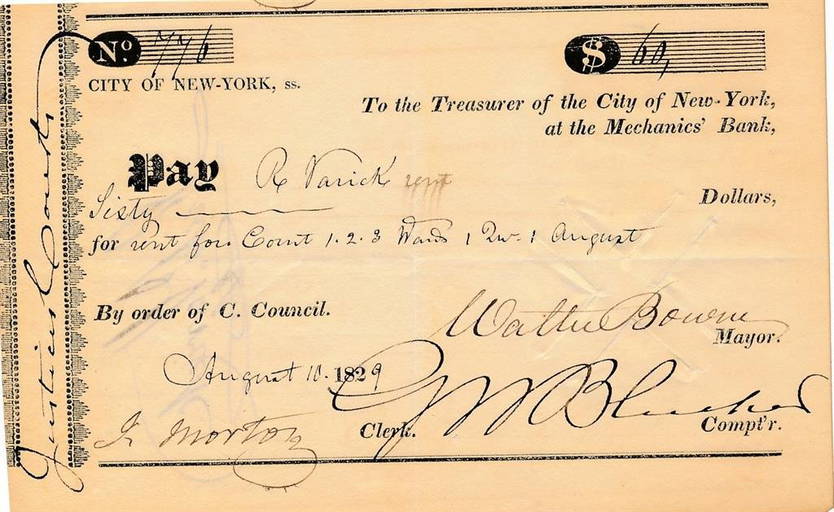 Justices Courts
No 776 $ 60,
CITY OF NEW-YORK, ss.
To the Treasurer of the City of New-York,
at the Mechanics' Bank,
Pay R Varick rent
Sixty Dollars,
for rent for Court 1. 2. 3 Wards 1 Qr. 1 August
By order of C. Council.
Walter Bowne
Mayor.
August 10. 1829
J Morton Clerk. Compt'r.